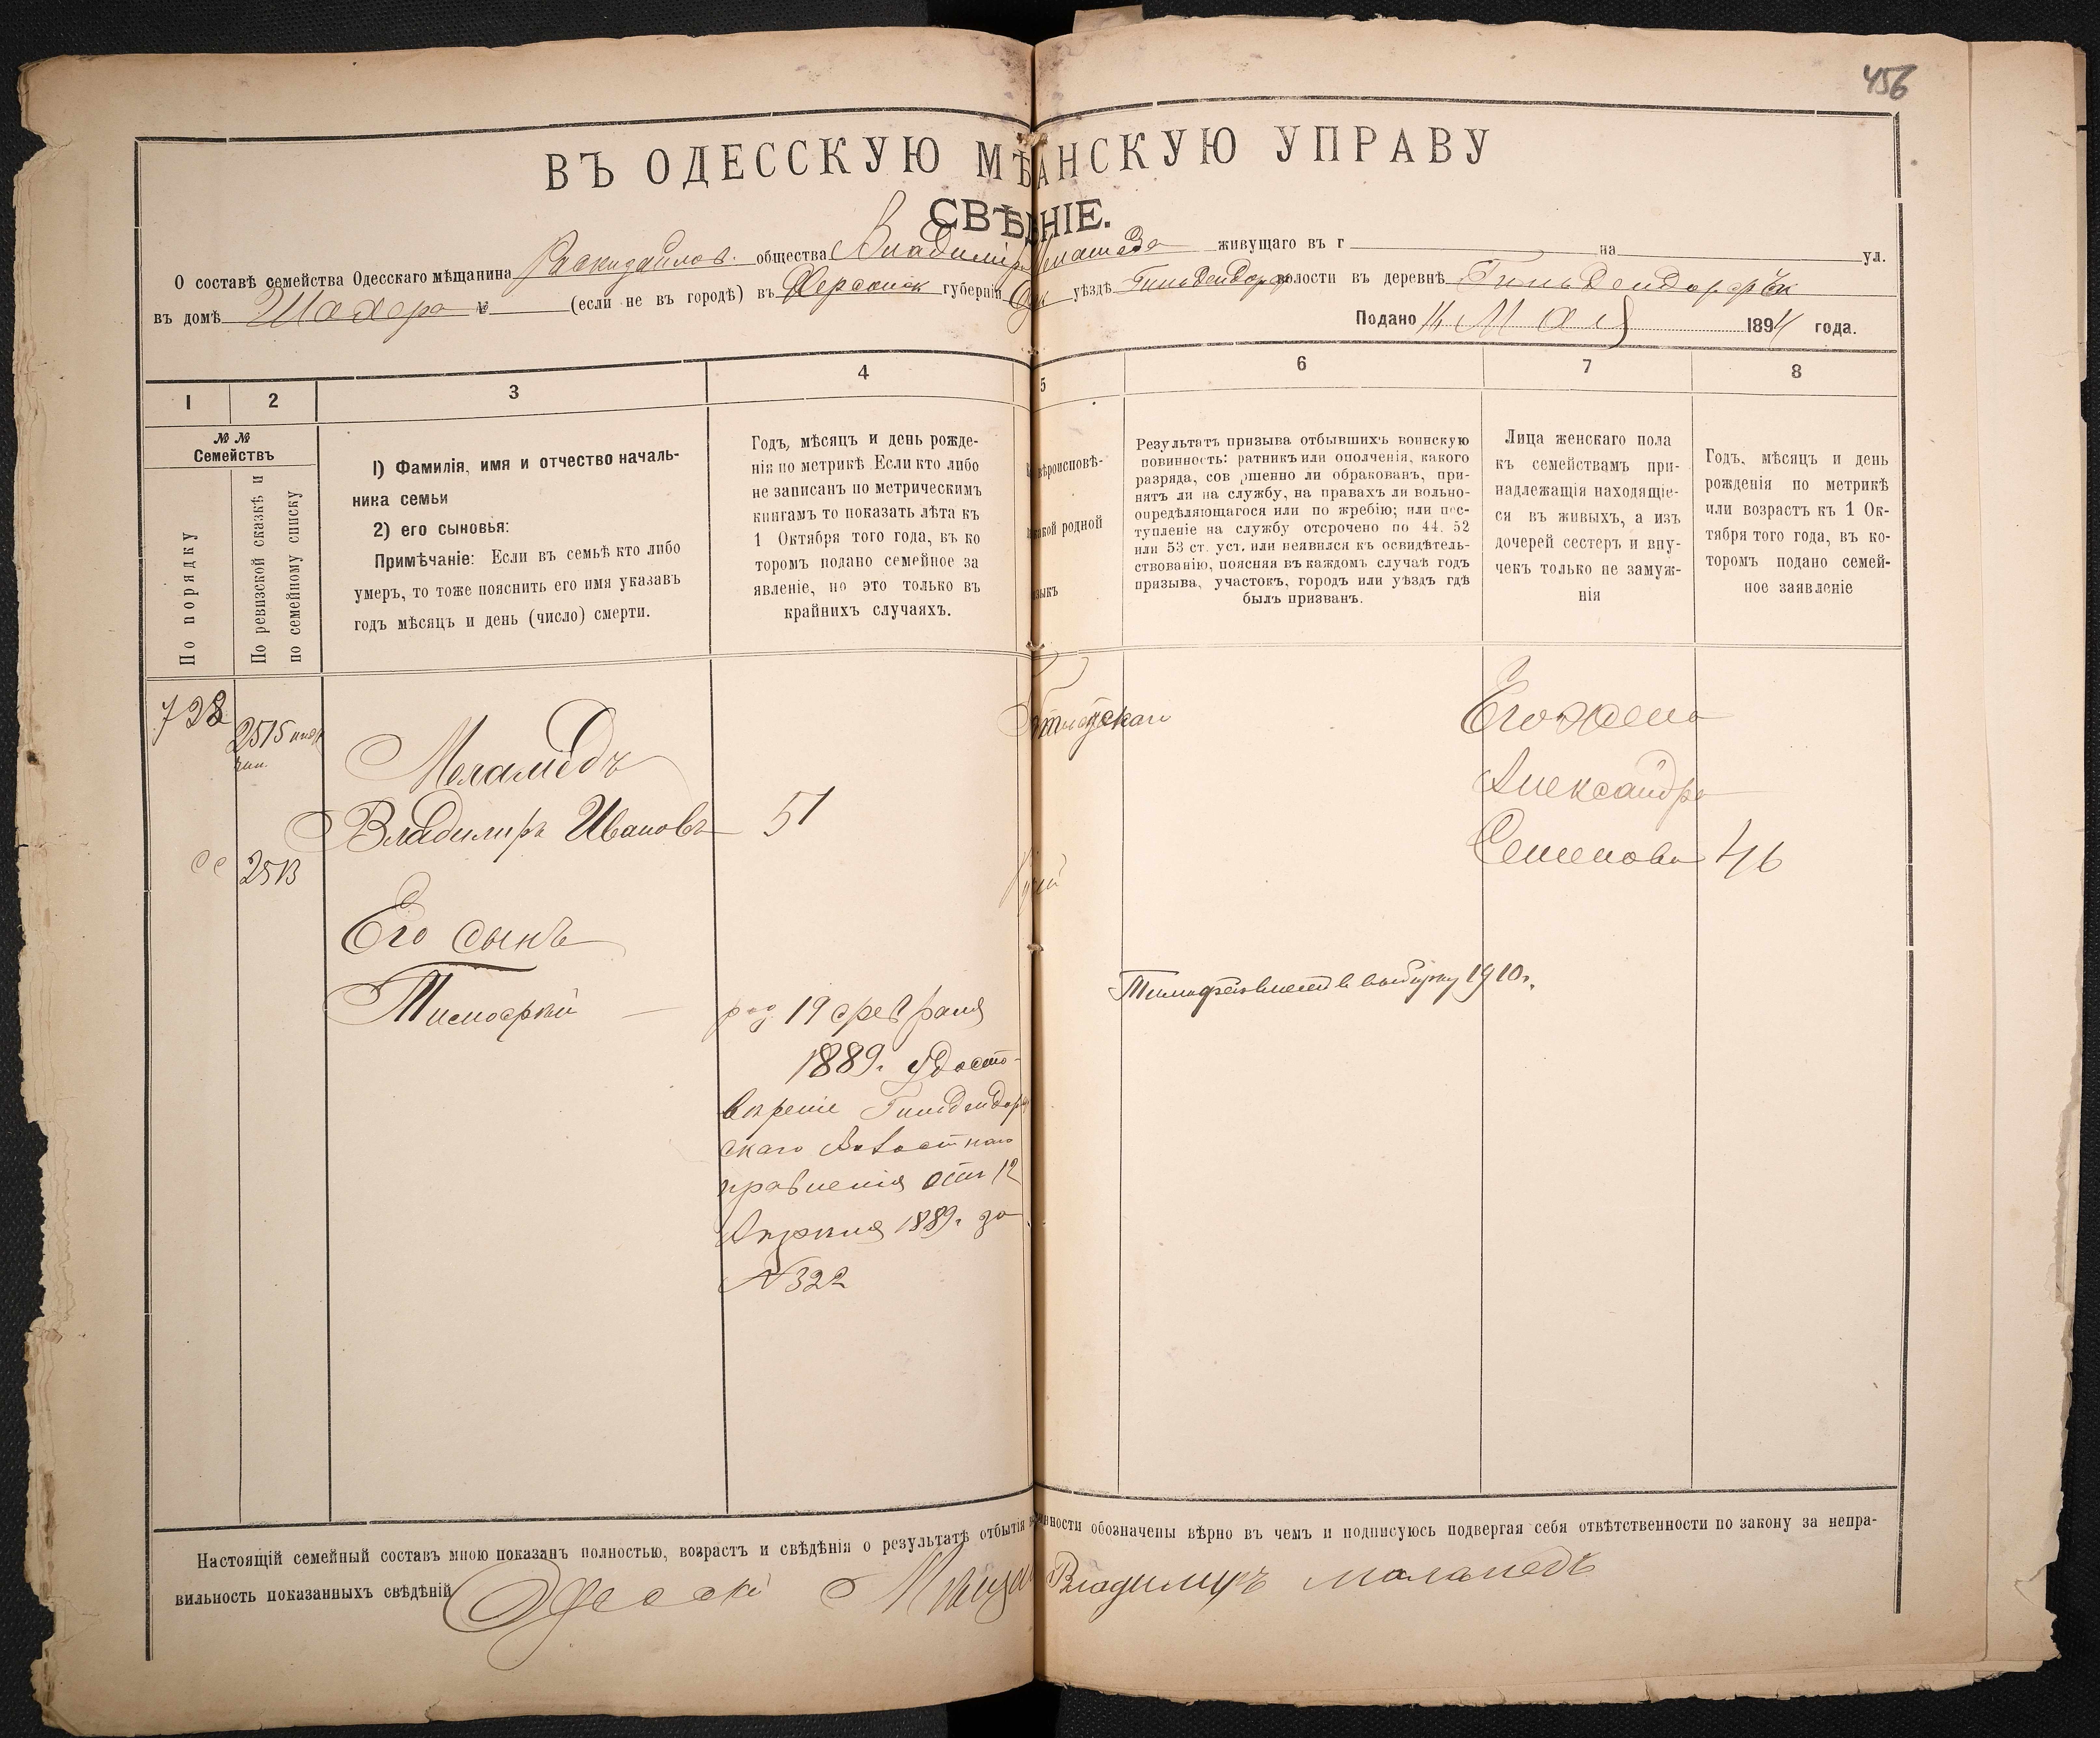 456
ВЪ ОДЕССКУЮ МѢАНСКУЮ УПРАВУ
СВѢНІЕ.
О составѣ семейства Одесскаго мѣщанина Раскидайлов. общества Владимір живущаго въ г на ул.
въ домѣ Шахера № (если не въ городѣ) въ Херсонск губерніи уѣздѣ Гильдендорф волости въ деревнѣ Гильдендорфѣ
Подано 14 Мая 1894 года.
1 2 3 4 5 6 7 8
№ №
Семействъ
По порядку
По ревизской сказкѣ и
по семейному списку
1) Фамилія, имя и отчество началь-
ника семьи
2) его сыновья:
Примѣчаніе: Если въ семьѣ кто либо
умеръ, то тоже пояснить его имя указавъ
годъ мѣсяцъ и день (число) смерти.
Годъ, мѣсяцъ и день рожде-
нія по метрикѣ Если кто либо
не записанъ по метрическимъ
книгамъ то показать лѣта къ
1 Октября того года, въ ко
торомъ подано семейное за
явленіе, но это только въ
крайнихъ случаяхъ.
вѣроисповѣ-
какой родной
языкъ
Результатъ призыва отбывшихъ воинскую
повинность: ратникъ или ополченія, какого
разряда, сов ршенно ли обракованъ, при-
нятъ ли на службу, на правахъ ли вольно-
опредѣляющагося или по жребію; или пос-
тупленіе на службу отсрочено по 44. 52
или 53 ст. уст. или неявился къ освидѣтель-
ствованію, поясняя въ каждомъ случаѣ годъ
призыва, участокъ, городъ или уѣздъ гдѣ
былъ призванъ.
Лица женскаго пола
къ семействамъ при-
надлежащія находящіе-
ся въ живыхъ, а изъ
дочерей сестеръ и вну-
чекъ только не замуж-
нія
Годъ, мѣсяцъ и день
рожденія по метрикѣ
или возрастъ къ 1 Ок-
тября того года, въ ко-
торомъ подано семей-
ное заявленіе
728
2515
Меламедъ
Владимиръ Ивановъ 51
2513
Его жена
Александра
Семенова 46
Его сынъ
Тимофей род. 19 февраля
1889г. Удосто-
вѣреніе Гильдендорф
скаго Волостнаго
правленія отъ 12
Апрѣля 1889г. за
№322
Тимофей внесенъ в выборку 1910г.
Настоящій семейный составъ мною показанъ полностью, возрастъ и свѣдѣнія о результатѣ отбытія нности обозначены вѣрно въ чемъ и подписуюсь подвергая себя отвѣтственности по закону за непра-
вильность показанныхъ свѣдѣній Одесскі Мѣща Владимиръ маламедъ